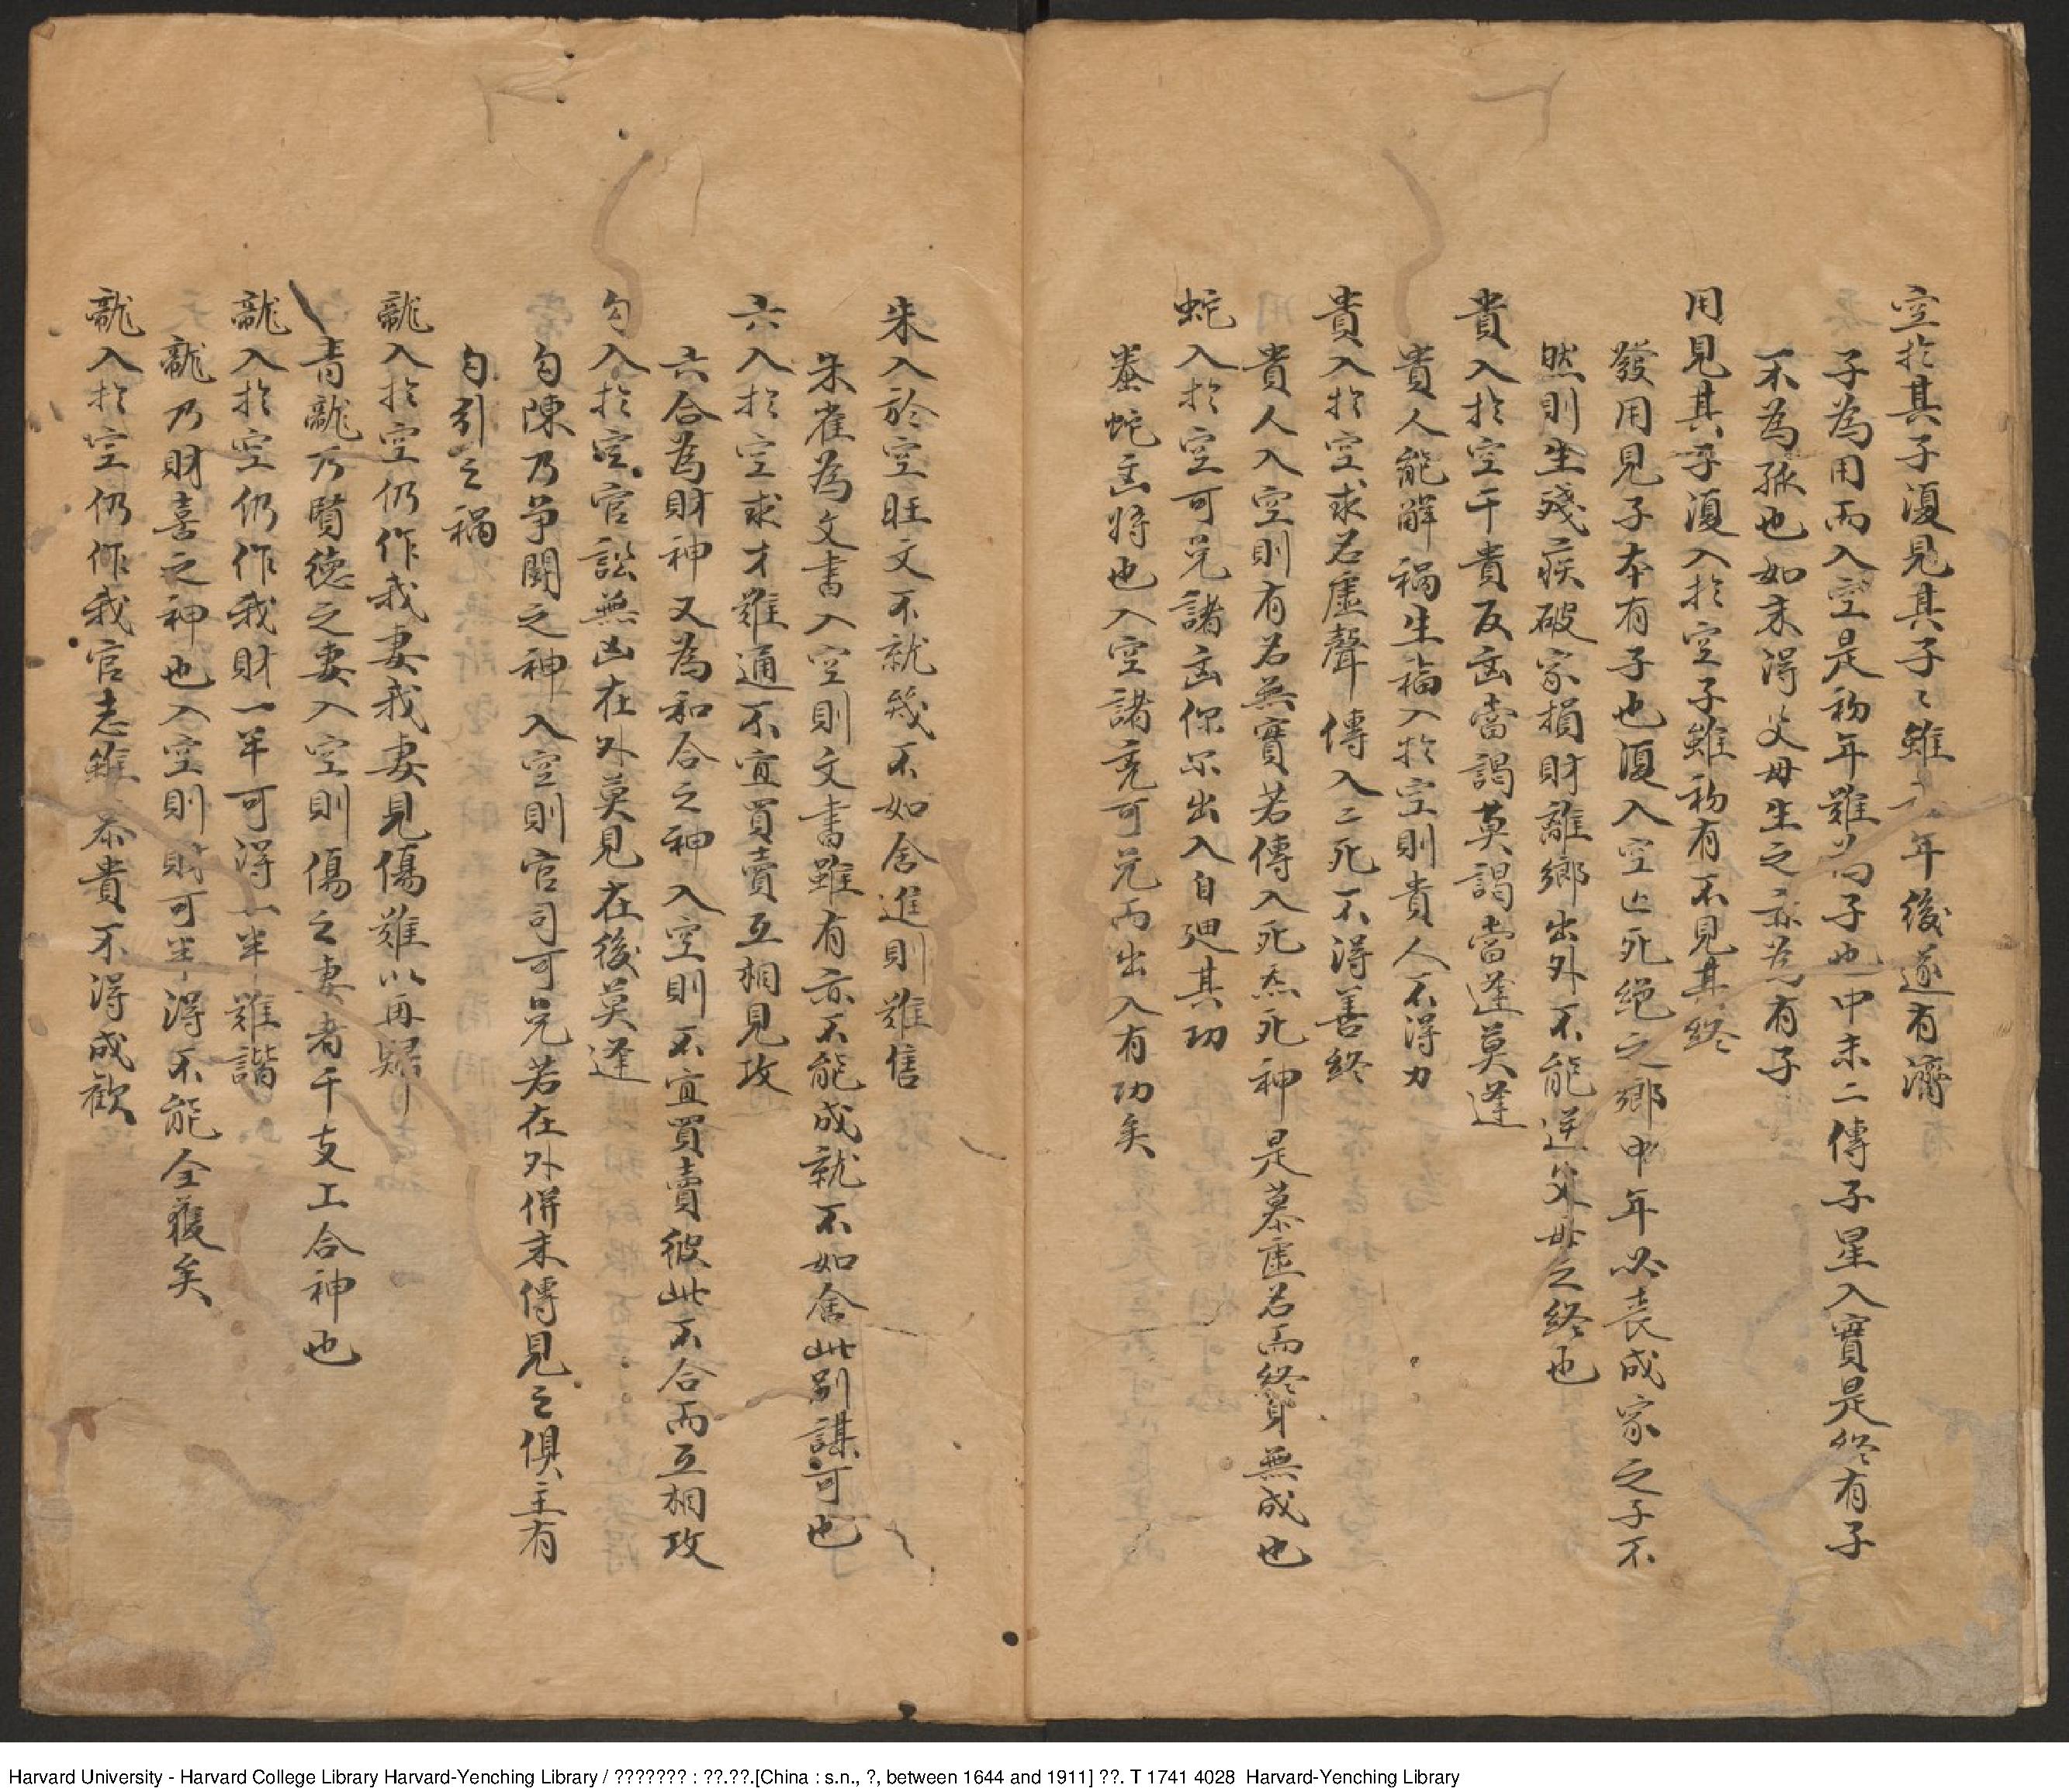 空於其子復見其子〻雖 年後遂有濟
子為用而入空是初年難為子也中末二傳子星入實是終有子
不為孤也如末得父母生之亦為有子
用見其子復入於空子雖初有不見其終
發用見子本有子也復入空亡死絕之鄉中年必喪成家之子不
然則生殘疾破家損財離鄉出外不能送父母之終也
貴入於空干貴反凶當謁莫謁當逢莫逢
貴人能解禍生福入於空則貴人不得力
貴入於空求名虛聲傳入三死不得善終
貴人入空則有名無實若傳入死炁死神是慕虛名而終身無成也
蛇入於空可免諸凶伱尔出入自廻其功
螣蛇凶將也入空諸 可免而出入有功矣
朱入於空旺文不就幾不如舍進則難售
朱雀為文書入空則文書雖有亦不能成就不如舍此别謀可也
六入於空求才難通不宜買賣互相見攻
六合為財神又為和合之神入空則不宜買賣彼此不合而互相攻
勾入於空官訟無凶在外莫見在後莫逢
勾陳乃爭鬪之神入空則官司可免若在外併末傳見之俱主有
勾引之禍
龍入於空仍作我妻我妻見傷難以再歸
青龍乃賢德之妻入空則傷之妻者干支上合神也
龍入於空仍作我財一半可得一半難諧
龍乃財喜之神也入空則財可半得不能全獲矣
龍入於空仍作我官志雖慕貴不得成歡
Harvard University - Harvard College Library Harvard-Yenching Library / ??????? : ??.??.[China : s.n., ?, between 1644 and 1911] ??. T 1741 4028 Harvard-Yenching Library